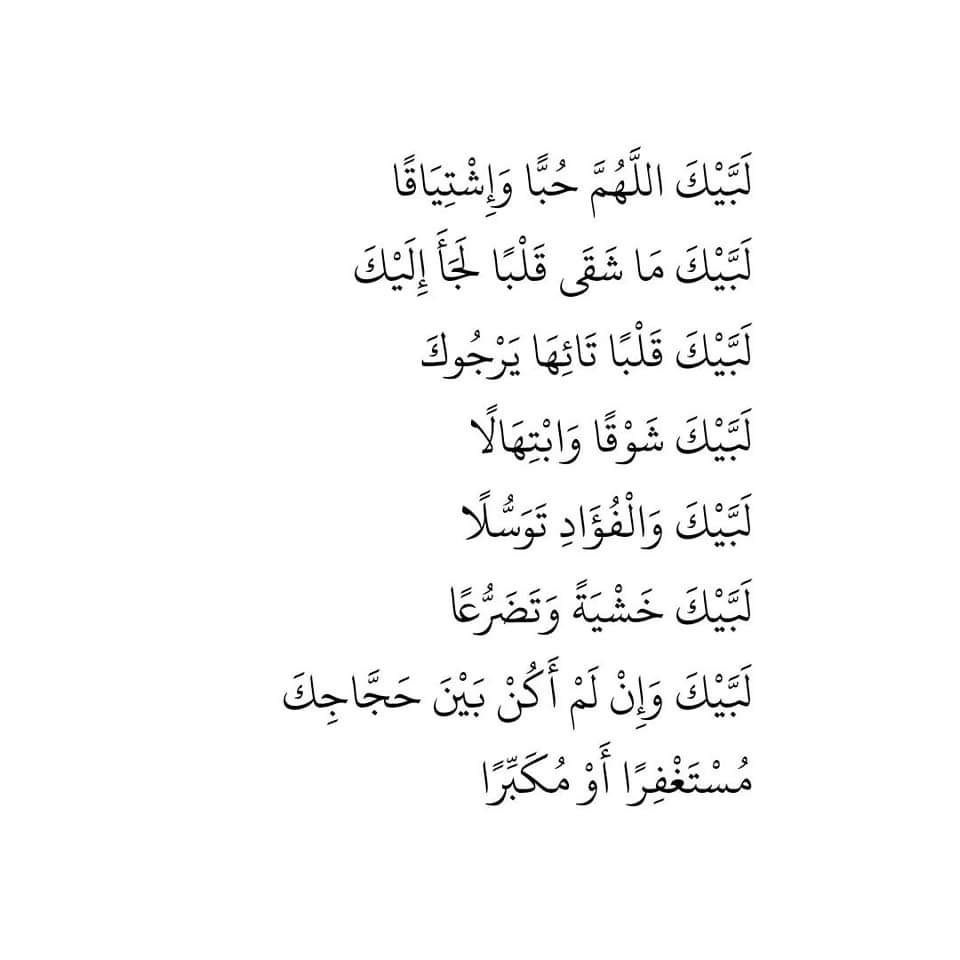 لَبَّيْكَ اللَّهُمَّ حُبًّا وَإِشْتِيَاقًا
لَبَّيْكَ مَا شَقَى قَلْبًا لَجَأَ إِلَيْكَ
لَبَّيْكَ قَلْبًا تَائِهَا يَرْجُوكَ
لَبَّيْكَ شَوْقًا وَابْتِهَالًا
لَبَّيْكَ وَالْفُؤَادِ تَوَسُّلًا
لَبَّيْكَ خَشْيَةً وَتَضَرُّعًا
لَبَّيْكَ وَإِنْ لَمْ أَكُنْ بَيْنَ حَجَّاجِكَ
مُسْتَغْفِرًا أَوْ مُكَبِّرًا